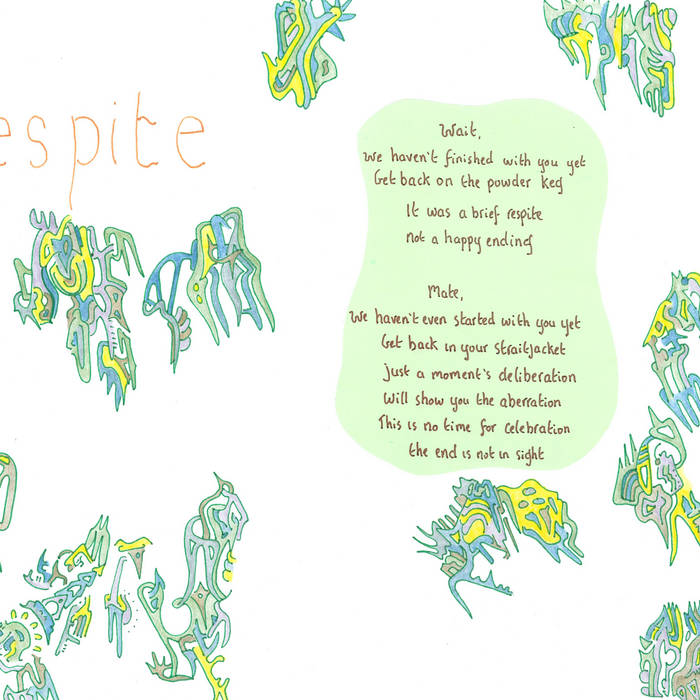 espite
Wait,
We haven't finished with you yet
Get back on the powder keg
It was a brief respite
Not a happy ending
Mate,
We haven't even started with you yet
Get back in your straitjacket
Just a moment's deliberation
Will show you the aberration
This is no time for celebration
the end is not in sight